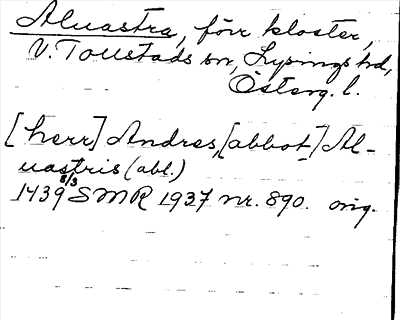 Aluastra, förr kloster,
V. Tollstads sn, Lysings hd,
Österg. l.
[herr] Andres, [abbot_] Al-
uastris (abl.)
1439 8/3 SMR 1937 nr. 890. orig.